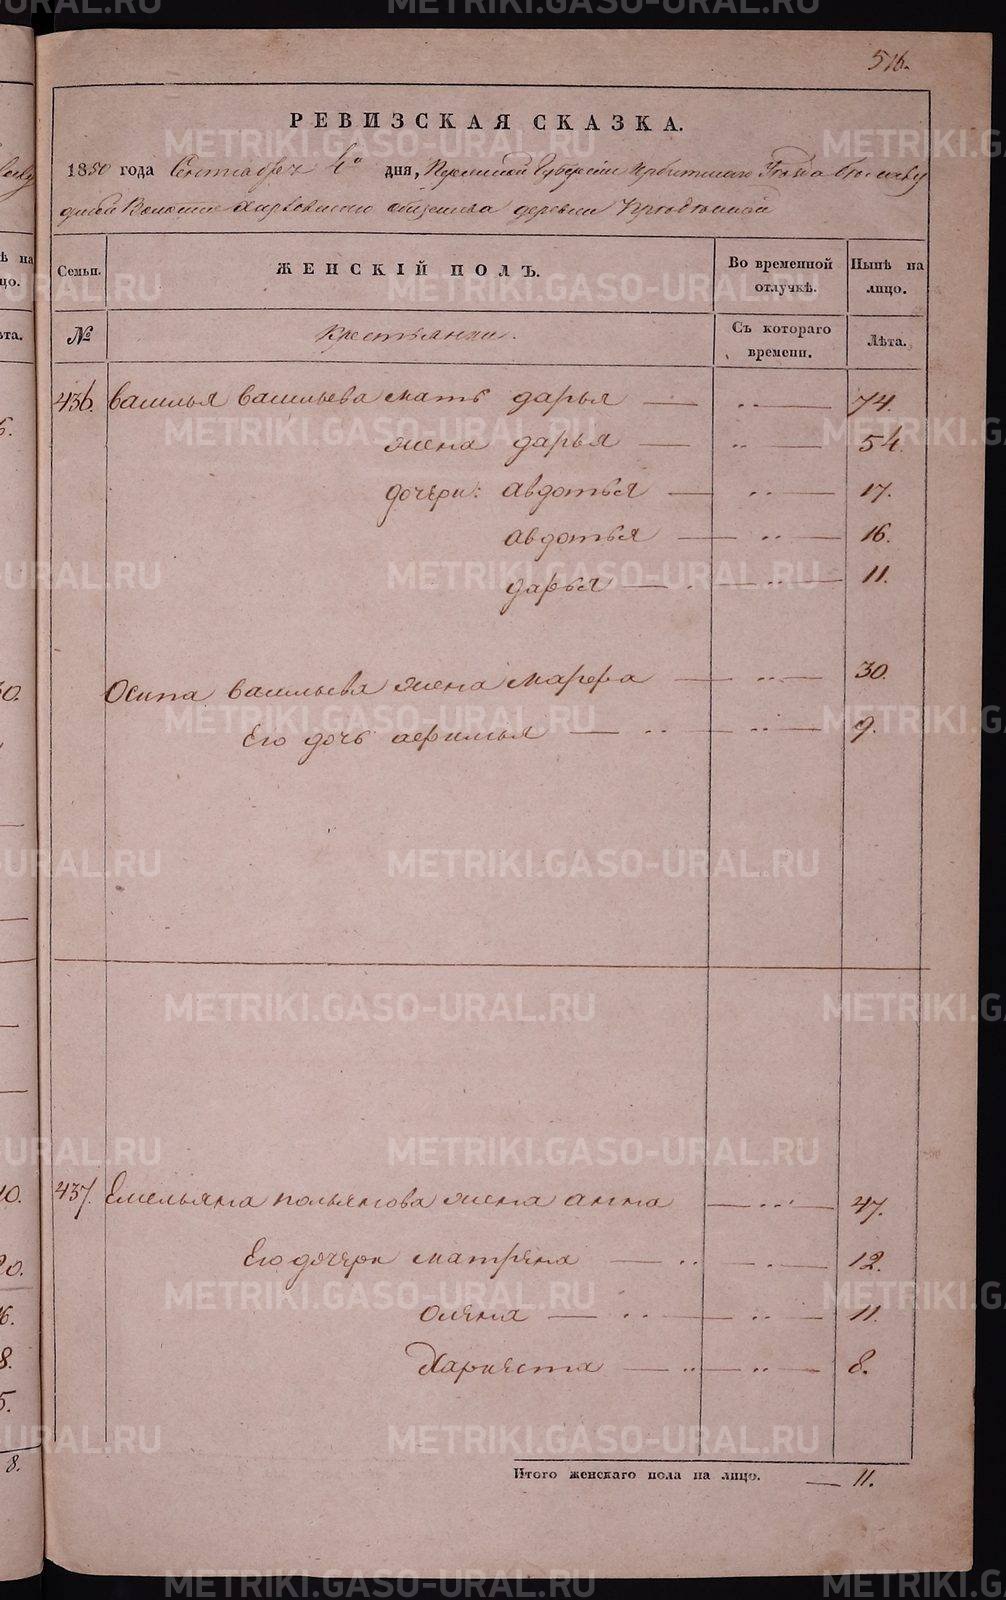 516.
РЕВИЗСКАЯ СКАЗКА.
1850 года Сентября 6го дня, Пермской Губернии Ирбитского Уезда
Волости деревни
Семьи. ЖЕНСКІЙ ПОЛЪ. Во временной отлучкѣ. Нынѣ на лицо.
№ Крестьянки. Съ котораго времени. Лѣта.
436. Василья Васильева мать дарья — ·· — 74.
жена дарья — ·· — 54.
дочери: авдотья — ·· — 17.
авдотья — ·· — 16.
дарья — ·· — 11.
Осипа Васильева жена марфа — ·· — 30.
Его дочь афимья — ·· — ·· — 9.
437. Емельяна жена анна — ·· — 47.
Его дочери матрена — ·· — · — 12.
олена — ·· — ·· — 11.
Харитста — ·· — ·· — 8.
Итого женскаго пола на лицо. — 11.
METRIKI.GASO-URAL.RU